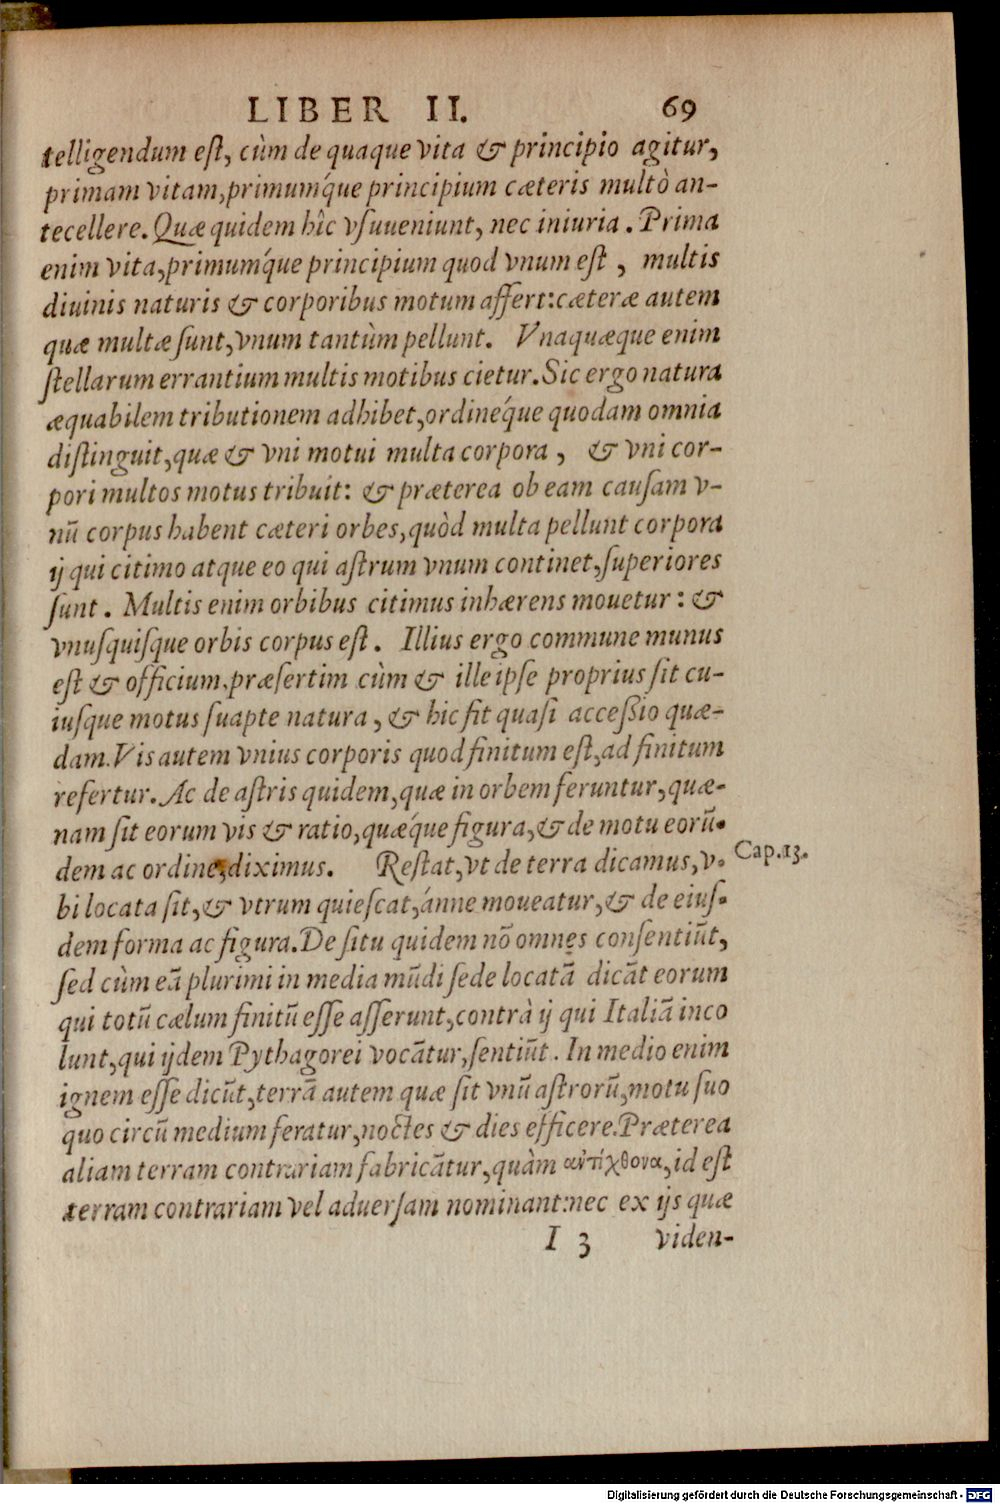 LIBER II. 69
telligendum eſt, cùm de quaque vita & principio agitur,
primam vitam, primumq́ue principium cæteris multò an-
tecellere. Quæ quidem hîc vſuueniunt, nec iniuria. Prima
enim vita, primumq́ue principium quod vnum eſt, multis
diuinis naturis & corporibus motum affert: cæteræ autem
quæ multæ ſunt, vnum tantùm pellunt. Vnaquæque enim
ſtellarum errantium multis motibus cietur. Sic ergo natura
æquabilem tributionem adhibet, ordineq́ue quodam omnia
diſtinguit, quæ & vni motui multa corpora, & vni cor-
pori multos motus tribuit: & præterea ob eam cauſam v-
nū corpus habent cæteri orbes, quòd multa pellunt corpora
ij qui citimo atque eo qui aſtrum vnum continet, ſuperiores
ſunt. Multis enim orbibus citimus inhærens mouetur: &
vnuſquiſque orbis corpus eſt. Illius ergo commune munus
eſt & officium, præſertim cùm & ille ipſe proprius ſit cu-
iuſque motus ſuapte natura, & hic fit quaſi acceßio quæ-
dam. Vis autem vnius corporis quod finitum eſt, ad finitum
refertur. Ac de aſtris quidem, quæ in orbem feruntur, quæ-
nam ſit eorum vis & ratio, quæq́ue figura, & de motu eorū-
dem ac ordine, diximus. Reſtat, vt de terra dicamus, v- Cap.13.
bi locata ſit, & vtrum quieſcat, ánne moueatur, & de eiuſ-
dem forma ac figura. De ſitu quidem nō omnes conſentiūt,
ſed cùm eā plurimi in media mūdi ſede locatā dicāt eorum
qui totū cælum finitū eſſe aſſerunt, contrà ij qui Italiā inco
lunt, qui ijdem Pythagorei vocātur, ſentiūt. In medio enim
ignem eſſe dicūt, terrā autem quæ ſit vnū aſtrorū, motu ſuo
quo circū medium feratur, noctes & dies efficere. Præterea
aliam terram contrariam fabricātur, quàm αντίχθονα, id eſt
terram contrariam vel aduerſam nominant: nec ex ijs quæ
I 3 viden-
Digitalisierung gefördert durch die Deutsche Forschungsgemeinschaft - DFG